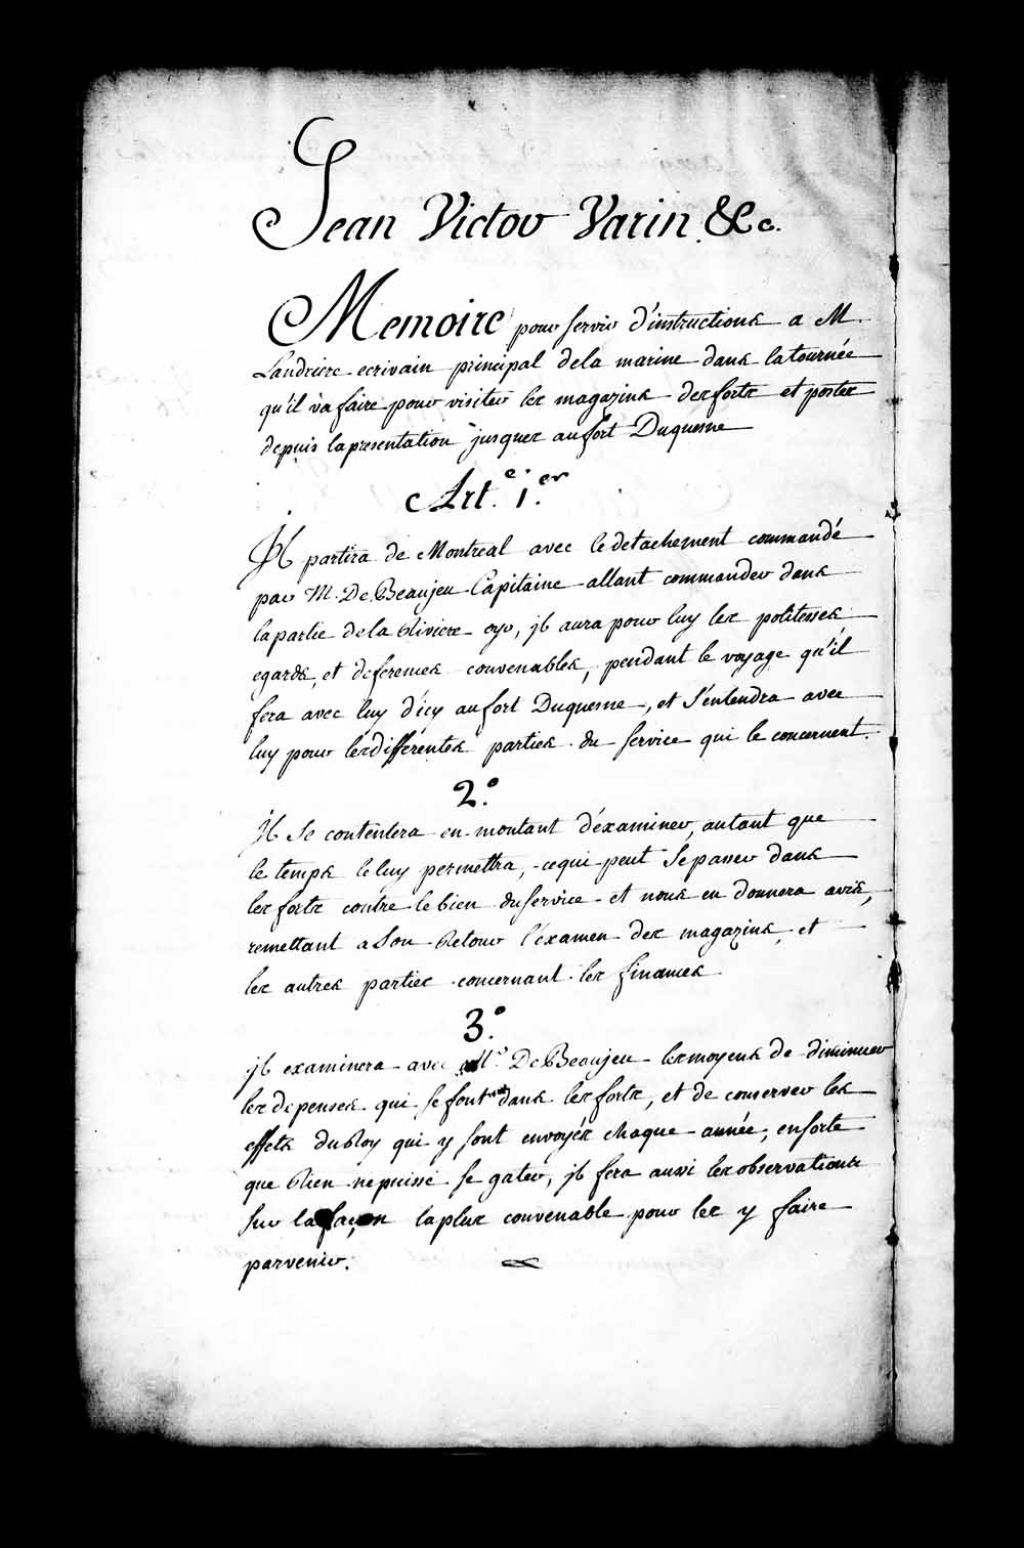 Jean Victor Varin &c.
Memoire pour servir d'instructions a M.
Landriere ecrivain principal dela marine dans latournée
qu'il va faire pour visiter les magazins des forts et postes
depuis lapresentation jusques aufort Duquesne
Art.e 1.er
Il partira de Montreal avec ledetachement commandé
par M. De Beaujeu Capitaine allant commander dans
lapartie dela Riviere oyo, jl aura pour luy les politesses
egards, et deferences convenables, pendant le voyage qu'il
fera avec luy d'icy aufort Duquesne, et s'entendra avec
luy pour lesdifférentes parties du service qui le concernent.
2.o
Il se contentera en montant d'éxaminer, autant que
le temps leluy permettra, cequi peut sepasser dans
les forts contre lebien duservice et nous en donnera avis,
remettant ason Retour l'éxamen des magazins, et
les autres parties concernant les finances
3.o
jl examinera avec M.r De Beaujeu lesmoyens de diminuer
les depenses qui sefont dans les forts, et de conserver les
effets duRoy qui y sont envoyés chaque année, ensorte
que Rien nepuisse se gater, jl fera aussi les observations
sur lafaçon laplus convenable pour les y faire
parvenir.